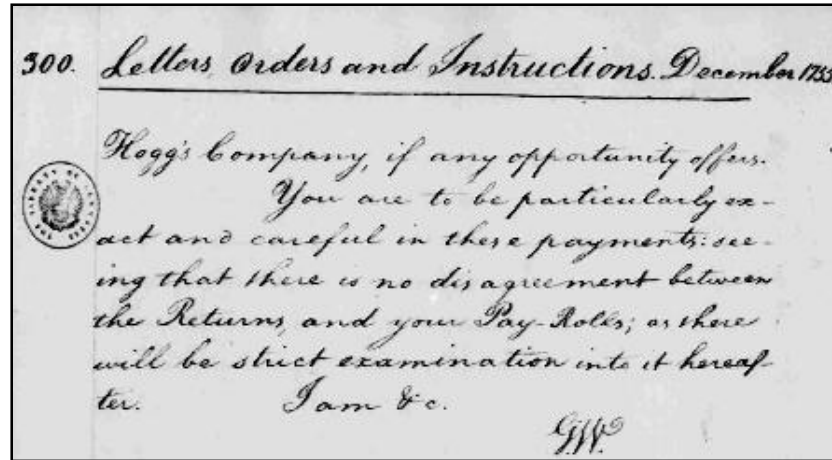 300. Letters, Orders and Instructions. December 1755
Hogg's Company, if any opportunity offers.
You are to be particularly ex-
act and careful in these payments: see-
ing that there is no disagreement between
the Returns, and your Pay-Rolls; as there
will be strict examination into it hereaf-
ter. I am &c.
G.W.